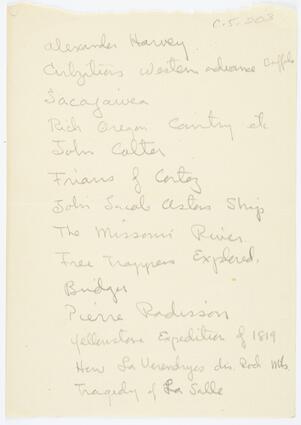 C.5.203
Alexander Harvey
Western advance Buffalo
Sacagawea
Rich Oregon Country etc
John Colter
Friars of Cortez
John Jacob Astors Ship
The Missouri River.
Free Trappers Explored.
Bridger
Pierre Radisson
Yellowstone Expedition of 1819
How La Verendryes dis. Rock Mts.
Tragedy of La Salle